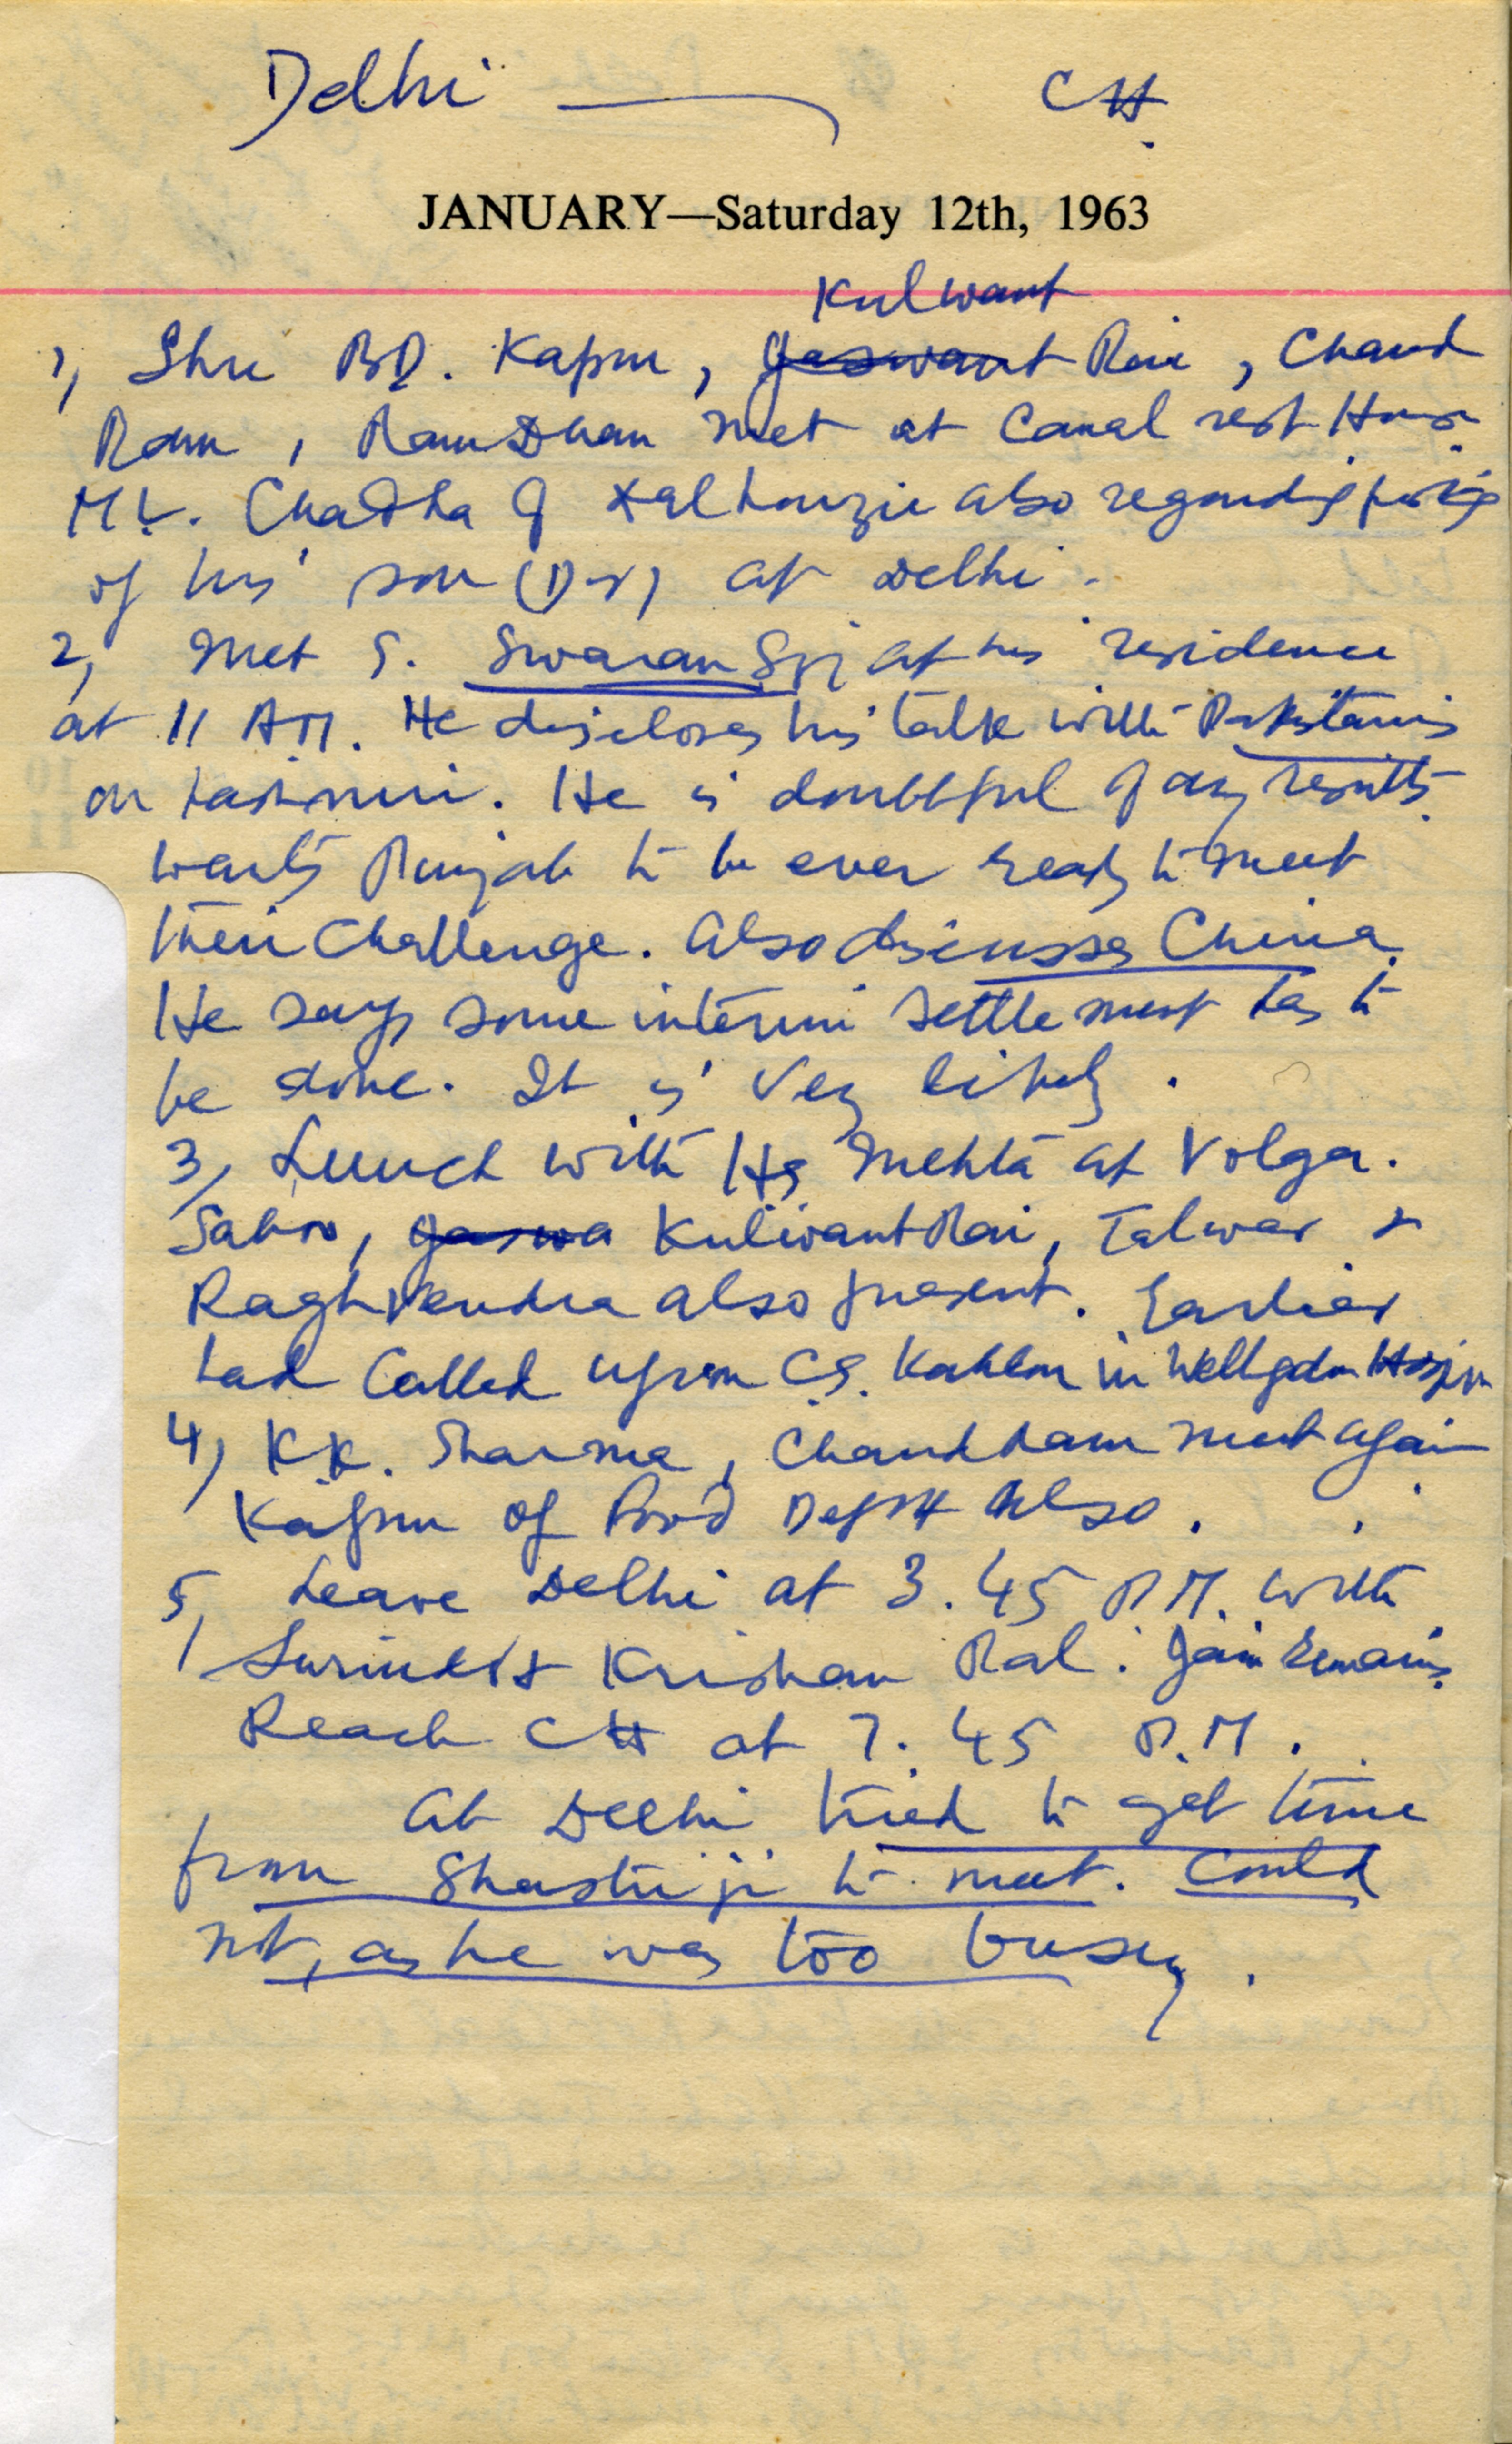 Delhi — CH.
JANUARY—Saturday 12th, 1963
Kulwant
1, Shri B.D. Kapur, Jaswant Rai, Chand
Ram, Ram Dhan met at Canal rest House.
Mr. Chadha of Dalhouzie also regarding posting
of his son (Dr) at Delhi.
2, Met S. Swaran Singh at his residence
at 11 AM. He discloses his talk with Pakistanis
on Kashmir. He is doubtful of any results.
wants Punjab to be ever ready to meet
their challenge. Also discusses China.
He says some interim settlement has to
be done. It is very likely.
3, Lunch with Mehta at Volga.
Jaswa Kulwant Rai, Talwar &
Raghvendra also present. Earlier
had called upon C.S. Kahlon in Wellgdon Hosp
4, K.K. Sharma, Chand Ram meet again
Kapur of Food Deptt also.
5, Leave Delhi at 3.45 P.M. with
Surinder & Krishan Pal. Jain remains.
Reach CH at 7.45 P.M.
At Delhi tried to get time
from Shastriji to meet. Could
not, as he was too busy.